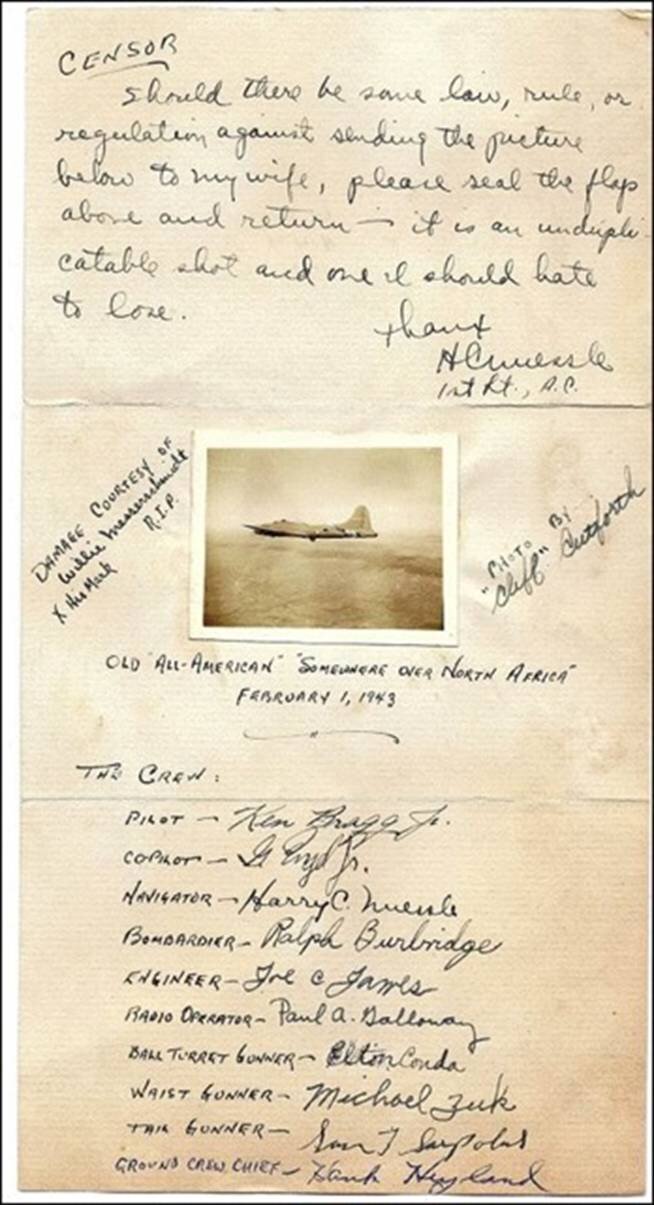 CENSOR
Should there be some law, rule, or
regulation against sending the picture
below to my wife, please seal the flap
above and return — it is an undupli-
catable shot and one I should hate
to lose.
thanx
HCNuessle
1st Lt., A.C.
DAMAGE COURTESY OF
Willie Messerschmidt
R.I.P.
X His Mark
PHOTO BY
"Cliff" Cutforth
OLD "ALL-AMERICAN" "SOMEWHERE OVER NORTH AFRICA"
FEBRUARY 1, 1943
THE CREW:
PILOT — Ken Bragg Jr.
COPILOT — G Jr.
NAVIGATOR — Harry C. Nuessle
BOMBARDIER — Ralph Burbridge
ENGINEER — Joe C James
RADIO OPERATOR — Paul A. Galloway
BALL TURRET GUNNER — Elton Conda
WAIST GUNNER — Michael Zuk
TAIL GUNNER — Sam T Sarpolus
GROUND CREW CHIEF — Hank Hyland